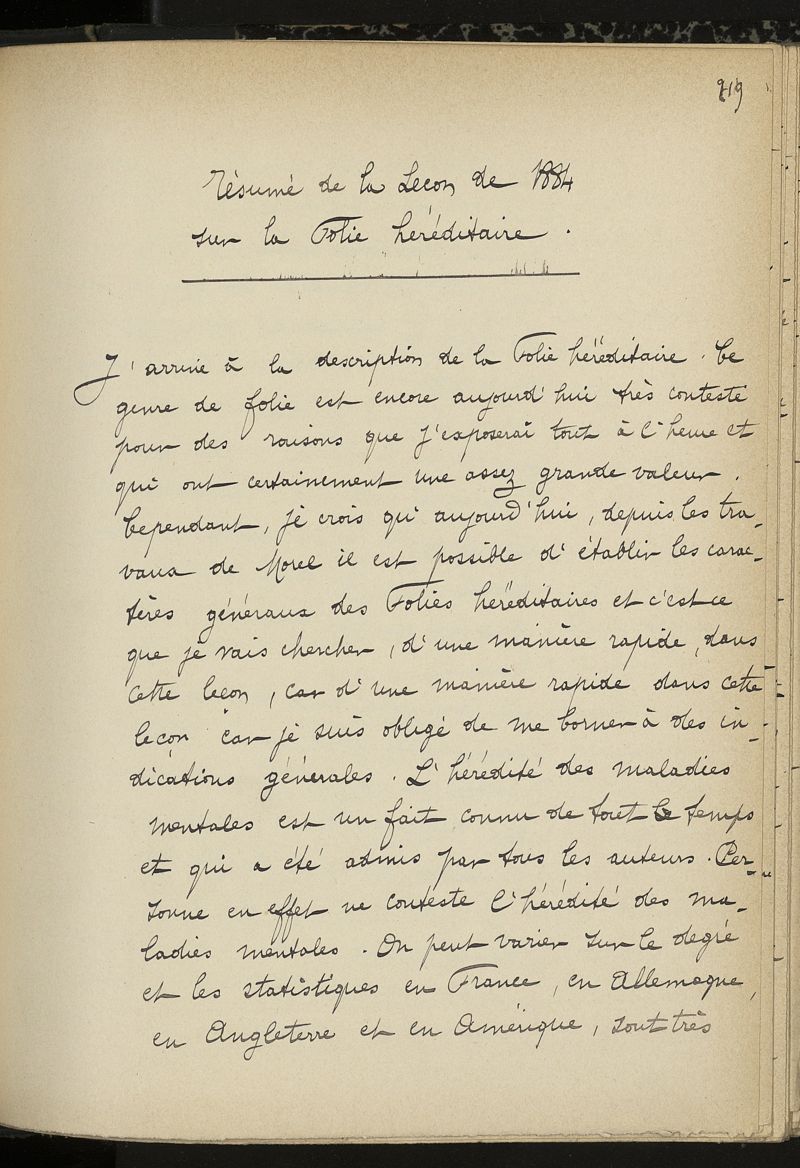 219
Résumé de la Leçon de 1884
sur la Folie héréditaire.
J'arrive à la description de la Folie héréditaire. Ce
genre de folie est encore aujourd'hui très contesté
pour des raisons que j'exposerai tout à l'heure et
qui ont certainement une assez grande valeur.
Cependant, je crois qu'aujourd'hui, depuis les tra-
vaux de Morel il est possible d'établir les carac-
tères généraux des Folies héréditaires et c'est ce
que je vais chercher, d'une manière rapide, dans
cette leçon, car d'une manière rapide dans cette
leçon car je suis obligé de me borner à des in-
dications générales. L'hérédité des maladies
mentales est un fait connu de tout le temps
et qui a été admis par tous les auteurs. Per-
sonne en effet ne conteste l'hérédité des ma-
ladies mentales. On peut varier sur le degré
et les statistiques en France, en Allemagne,
en Angleterre et en Amérique, sont très